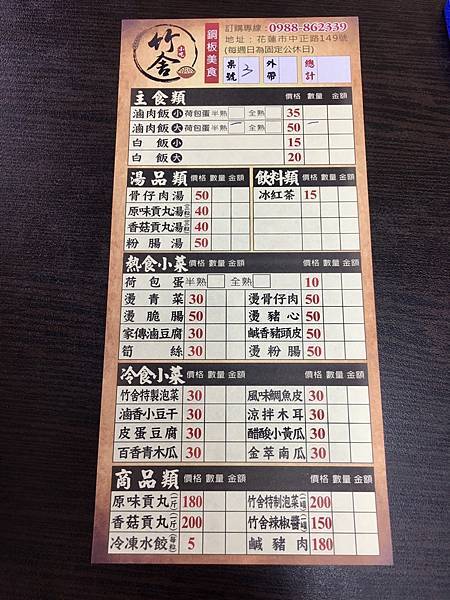 竹舍
小吃
銅板美食
訂購專線：0988-862339
地址：花蓮市中正路149號
(每週日為固定公休日)
桌號 3 外帶 總計
主食類 價格 數量 金額
滷肉飯 小 荷包蛋 半熟 全熟 35
滷肉飯 大 荷包蛋 半熟 全熟 50
白飯 小 15
白飯 大 20
湯品類 價格 數量 金額
骨仔肉湯 50
原味貢丸湯 40
香菇貢丸湯 40
粉腸湯 50
飲料類 價格 數量 金額
冰紅茶 15
熱食小菜 價格 數量 金額 價格 數量 金額
荷包蛋 半熟 全熟 10
燙青菜 30 燙骨仔肉 50
燙脆腸 50 燙豬心 50
家傳滷豆腐 30 鹹香豬頭皮 50
筍絲 30 燙粉腸 50
冷食小菜 價格 數量 金額 價格 數量 金額
竹舍特製泡菜 30 風味鯛魚皮 30
滷香小豆干 30 涼拌木耳 30
皮蛋豆腐 30 醋酸小黃瓜 30
百香青木瓜 30 金萃南瓜 30
商品類 價格 數量 金額 價格 數量 金額
原味貢丸(一斤) 180 竹舍特制泡菜(一罐) 200
香菇貢丸(一斤) 200 竹舍辣椒醬(一罐) 150
冷凍水餃(每粒) 5 鹹豬肉 180